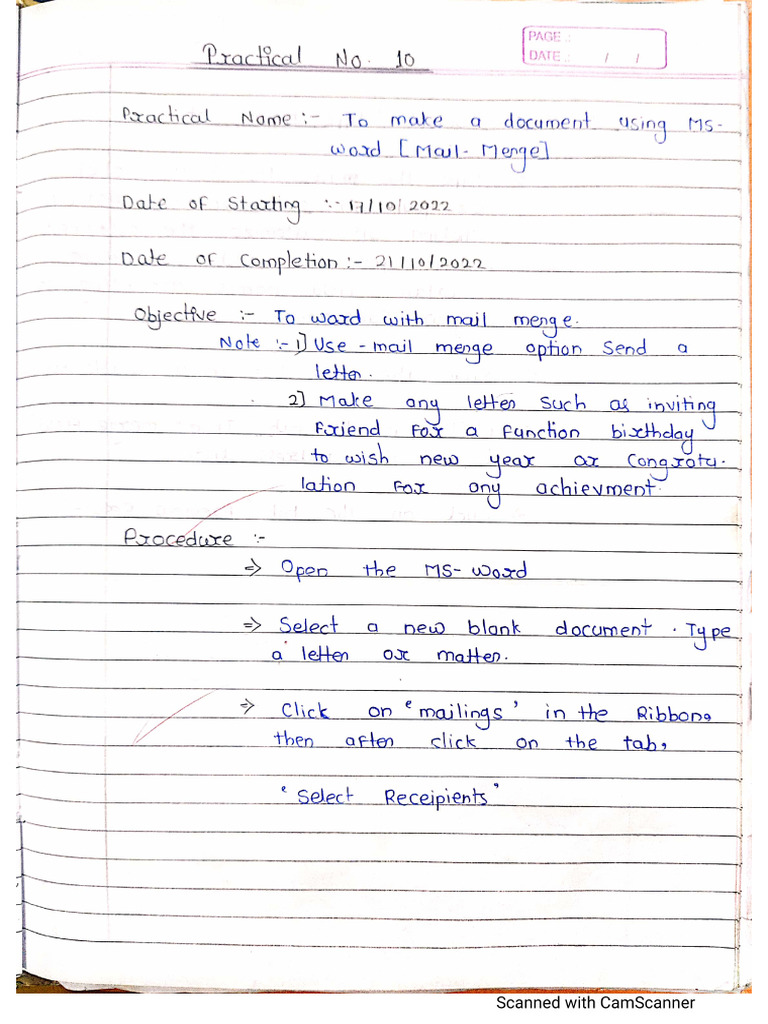 PAGE :
DATE : / /
Practical No. 10
Practical Name :- To make a document using MS-
word [Mail-Merge]
Date of Starting :- 17/10/2022
Date of Completion :- 21/10/2022
Objective :- To word with mail merge.
Note :- 1] Use - mail merge option Send a
letter.
2] Make any letter such as inviting
friend for a function birthday
to wish new year or Congratu-
lation for any achievment.
Procedure :-
⇒ Open the MS-word
⇒ Select a new blank document. Type
a letter or matter.
⇒ Click on ‘mailings’ in the Ribbon,
then after click on the tab,
‘Select Receipients’
Scanned with CamScanner